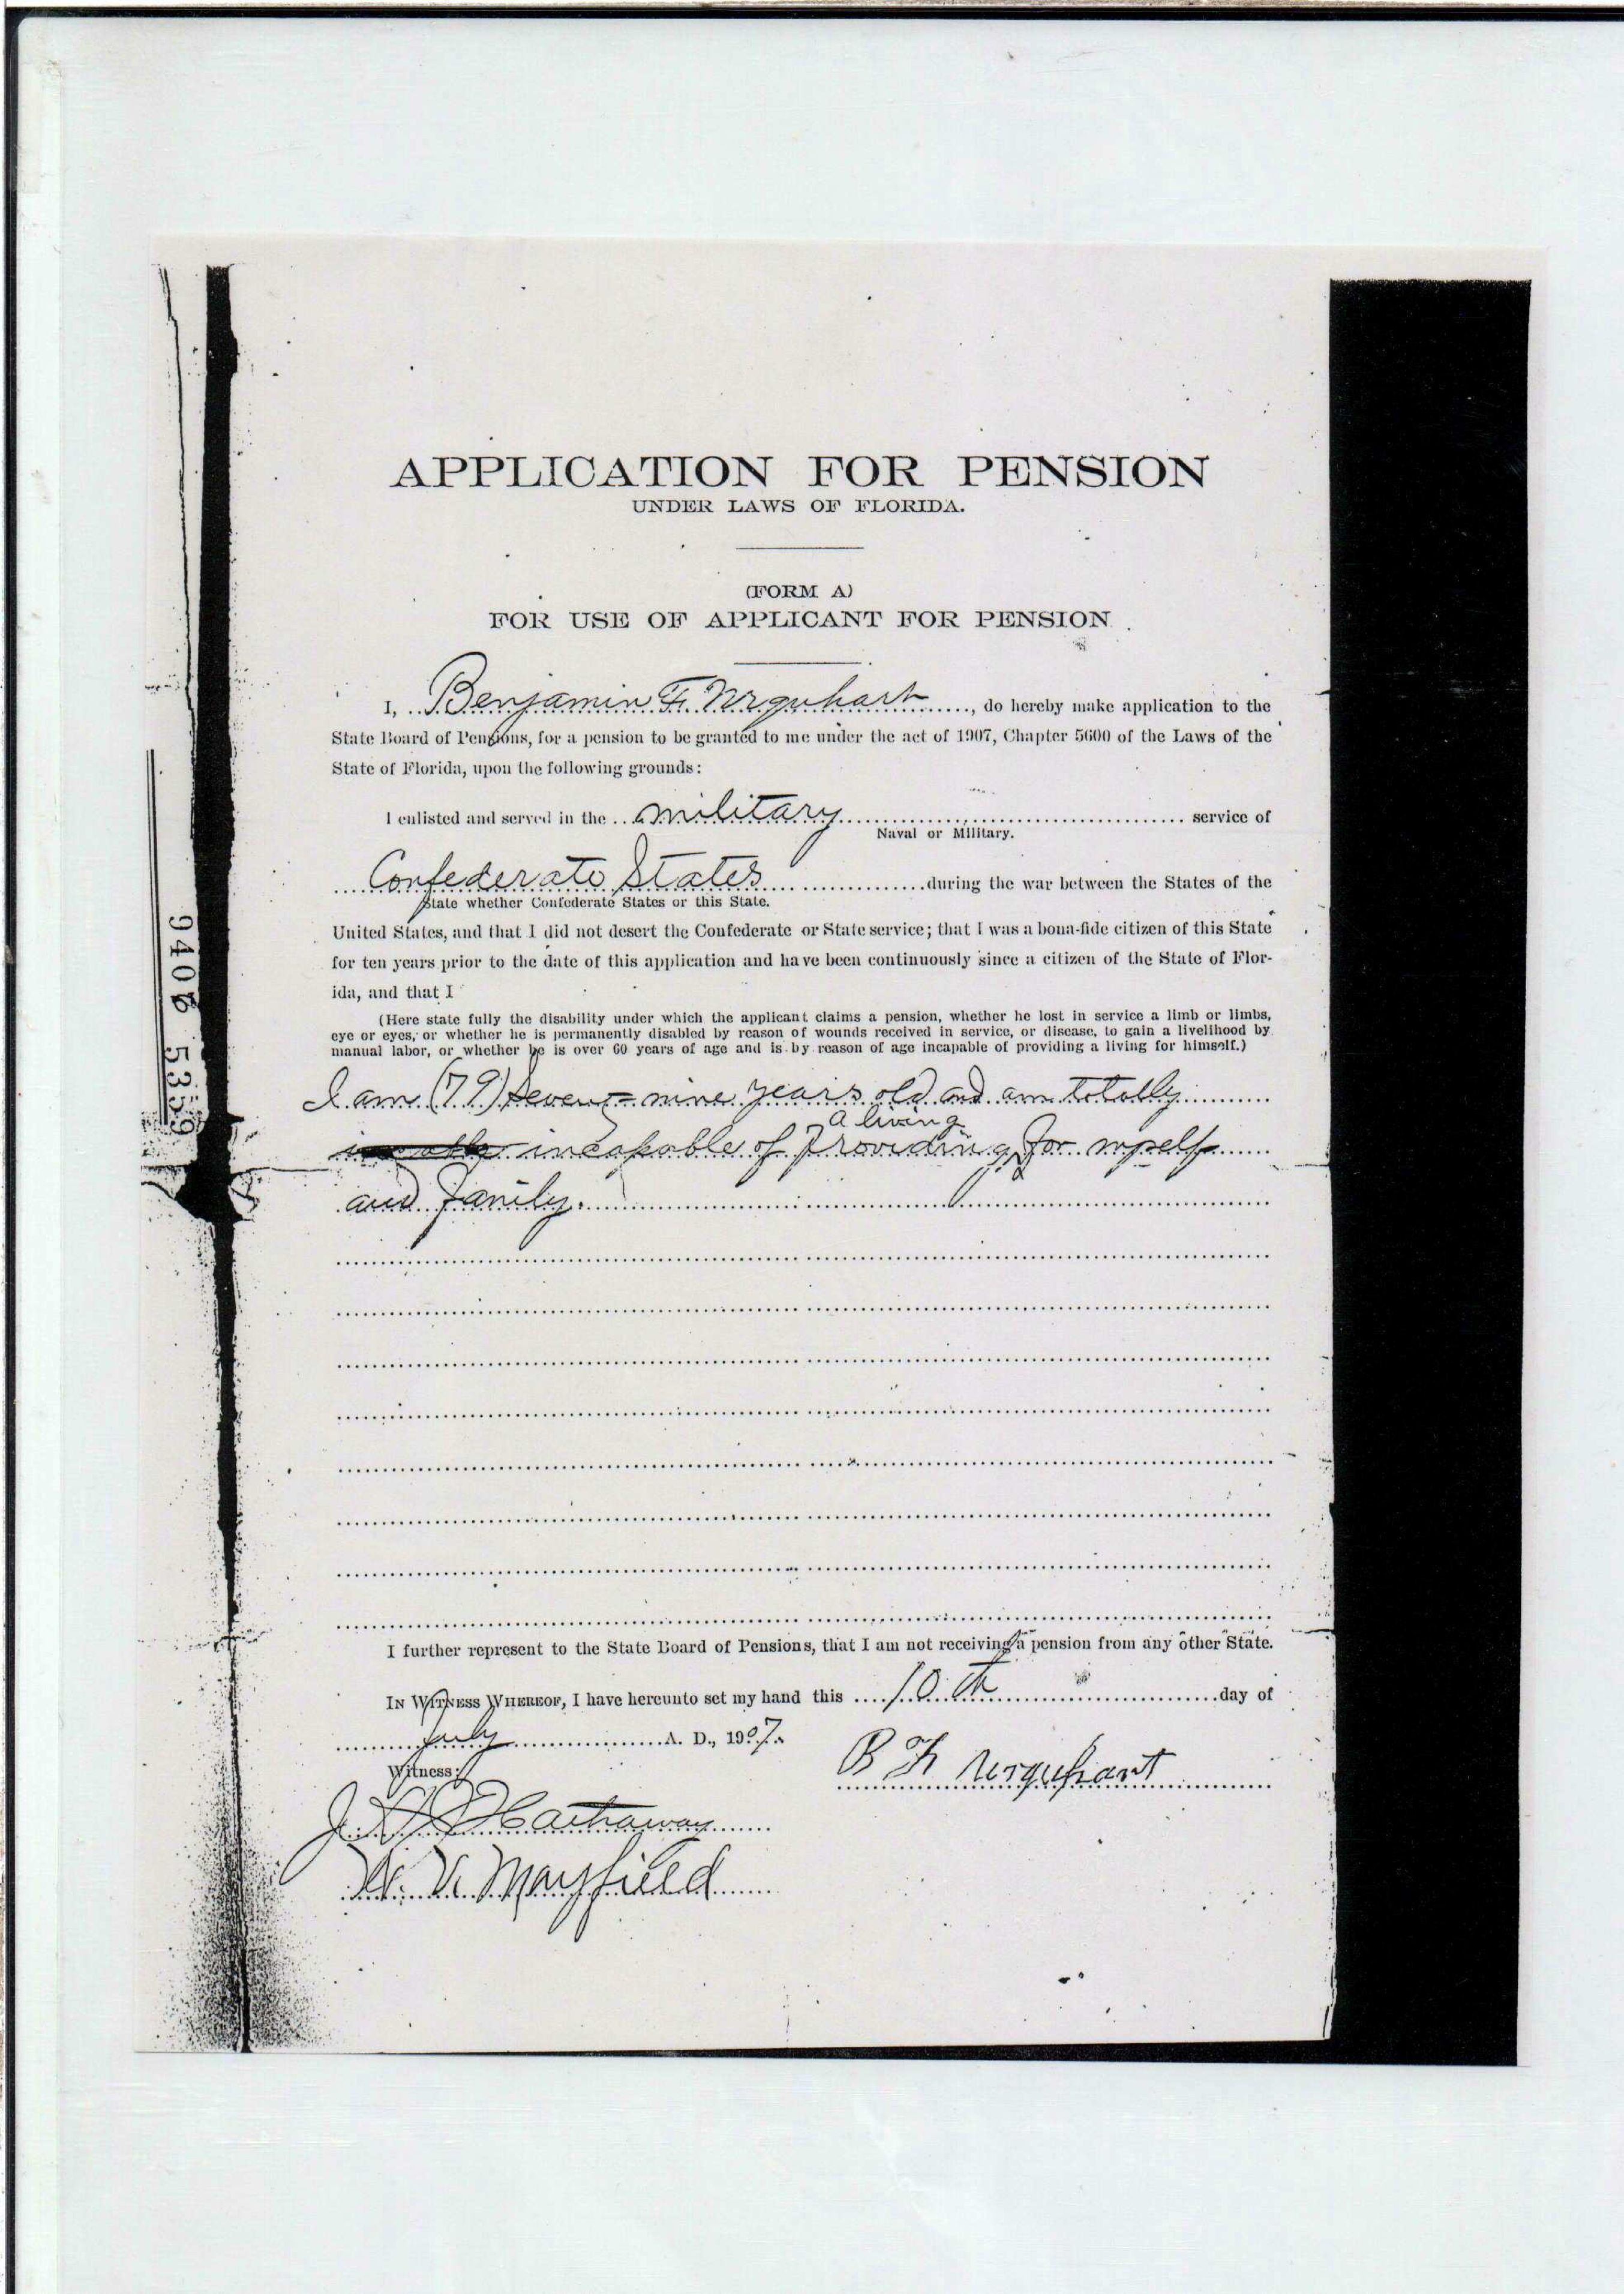 APPLICATION FOR PENSION
UNDER LAWS OF FLORIDA.
(FORM A)
FOR USE OF APPLICANT FOR PENSION
I, Benjamin F. Urquhart, do hereby make application to the
State Board of Pensions, for a pension to be granted to me under the act of 1907, Chapter 5600 of the Laws of the
State of Florida, upon the following grounds:
I enlisted and served in the military service of
Naval or Military.
Confederate States during the war between the States of the
State whether Confederate States or this State.
United States, and that I did not desert the Confederate or State service; that I was a bona-fide citizen of this State
for ten years prior to the date of this application and have been continuously since a citizen of the State of Flor-
ida, and that I
(Here state fully the disability under which the applicant claims a pension, whether he lost in service a limb or limbs,
eye or eyes, or whether he is permanently disabled by reason of wounds received in service, or disease, to gain a livelihood by
manual labor, or whether he is over 60 years of age and is by reason of age incapable of providing a living for himself.)
I am (79) Seventy-nine years old and am totally
a living
incapable of Providing for myself
and family.
I further represent to the State Board of Pensions, that I am not receiving a pension from any other State.
IN WITNESS WHEREOF, I have hereunto set my hand this 10th day of
July A. D., 1907.
B F Urquhart
Witness:
Hathaway
Mayfield
5359